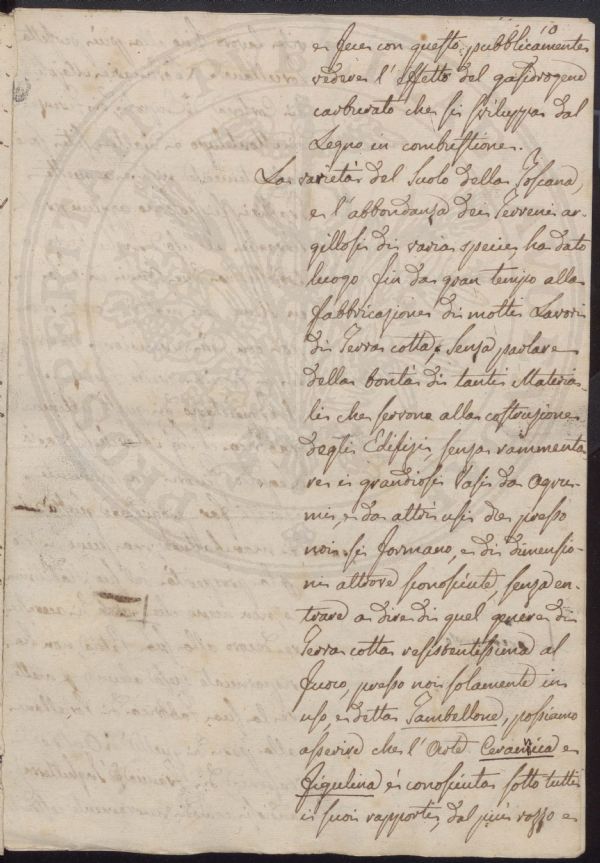 10
e fece con questo pubblicamente
vedere l'effetto del gasidrogeno
carburato che si sviluppa dal
Legno in combustione.
La varietà del Suolo della Toscana,
e l'abbondanza dei Terreni ar-
gillosi di varia specie, ha dato
luogo fin da gran tempo alla
fabbricazione di molti Lavori
di Terra cotta, Senza parlare
della bontà di tanti Materia-
li che servono alla costruzione
degli Edifizi, senza rammenta-
re i grandiosi Vasi da Agru-
mi, e da altri usi che presso
noi si formano, e di dimensio-
ni altrove sconosciute, senza en-
trare a dire di quel genere di
Terra cotta resistentissima al
fuoco, presso noi solamente in
uso e detta Tambellone, possiamo
asserire che l'Arte Ceramica e
Figulina è conosciuta sotto tutti
i suoi rapporti, dal più rozzo e